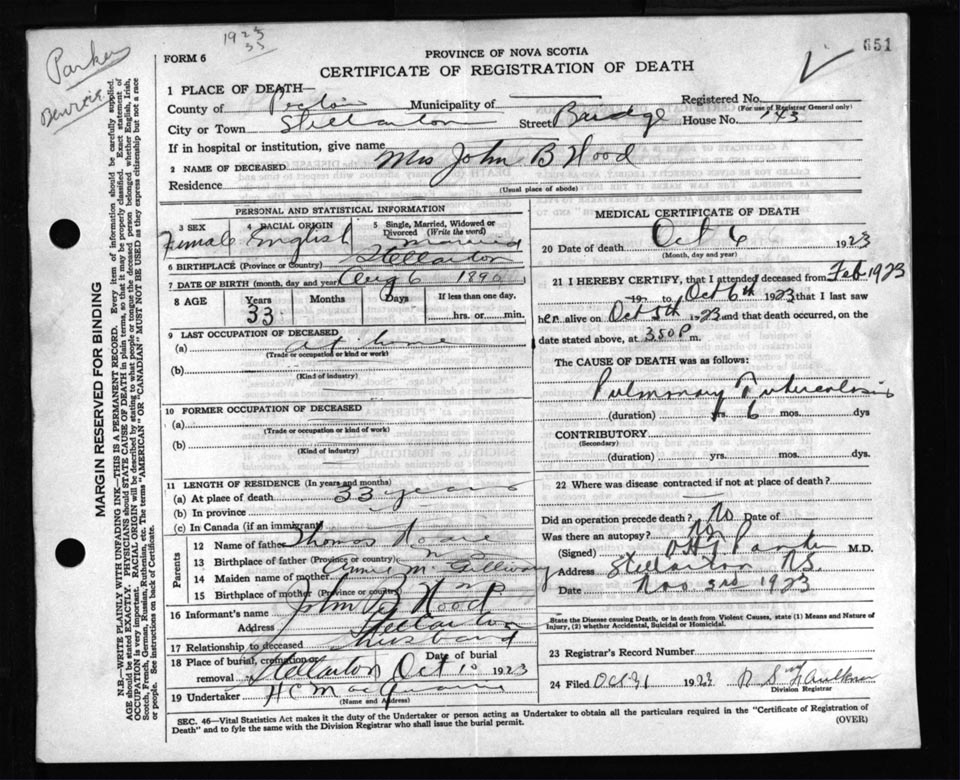 1923
33
Parker
651
FORM 6
PROVINCE OF NOVA SCOTIA
CERTIFICATE OF REGISTRATION OF DEATH
1 PLACE OF DEATH—
County of Pictou Municipality of Registered No.
(For use of Registrar General only)
City or Town Stellarton Street Bridge House No. 143
If in hospital or institution, give name
2 NAME OF DECEASED Mrs John B Hood
Residence
(Usual place of abode)
MARGIN RESERVED FOR BINDING
N.B.—WRITE PLAINLY WITH UNFADING INK—THIS IS A PERMANENT RECORD. Every item of information should be carefully supplied.
AGE should be stated EXACTLY. PHYSICIANS should STATE CAUSE OF DEATH in plain terms, so that it may be properly classified. Exact statement of
OCCUPATION is very important. RACIAL ORIGIN will be described by stating to what people or tongue the deceased person belonged, whether English, Irish,
Scotch, French, German, Russian, Ruthenian, etc. The terms "AMERICAN" OR "CANADIAN" MUST NOT BE USED as they express citizenship but not a race
or people. See instructions on back of Certificate.
PERSONAL AND STATISTICAL INFORMATION
3 SEX 4 RACIAL ORIGIN 5 Single, Married, Widowed or Divorced (Write the word)
Female English Married
6 BIRTHPLACE (Province or Country) Stellarton
7 DATE OF BIRTH (month, day and year) Aug 6 1890
8 AGE Years Months Days If less than one day,
33 hrs. or min.
9 LAST OCCUPATION OF DECEASED
(a) At home
(Trade or occupation or kind or work)
(b)
(Kind of industry)
10 FORMER OCCUPATION OF DECEASED
(a)
(Trade or occupation or kind of work)
(b)
(Kind of industry)
11 LENGTH OF RESIDENCE (In years and months)
(a) At place of death 33 years
(b) In province
(c) In Canada (if an immigrant)
Parents
12 Name of father Thomas
13 Birthplace of father (Province or country) N S
14 Maiden name of mother
15 Birthplace of mother (Province or country) N S
16 Informant's name John B Hood
Address Stellarton
17 Relationship to deceased husband
18 Place of burial, cremation or removal Stellarton Date of burial Oct 1923
19 Undertaker H C
(Name and Address)
MEDICAL CERTIFICATE OF DEATH
20 Date of death Oct 6 1923
(Month, day and year)
21 I HEREBY CERTIFY, that I attended deceased from Feb 1923
19 to Oct 6th 1923 that I last saw
her alive on Oct 5th 1923 and that death occurred, on the
date stated above, at 3.50 P m.
The CAUSE OF DEATH was as follows:
Pulmonary Tuberculosis
(duration) yrs 6 mos. dys
CONTRIBUTORY
(Secondary)
(duration) yrs. mos. dys
22 Where was disease contracted if not at place of death?
Did an operation precede death? No Date of
Was there an autopsy? No
(Signed) M.D.
Address Stellarton N.S.
Date Nov 3rd 1923
State the Disease causing Death, or in death from Violent Causes, state (1) Means and Nature of
Injury, (2) whether Accidental, Suicidal or Homicidal.
23 Registrar's Record Number
24 Filed Oct 31 1923 R S Faulkner
Division Registrar
SEC. 46—Vital Statistics Act makes it the duty of the Undertaker or person acting as Undertaker to obtain all the particulars required in the "Certificate of Registration of
Death" and to fyle the same with the Division Registrar who shall issue the burial permit. (OVER)